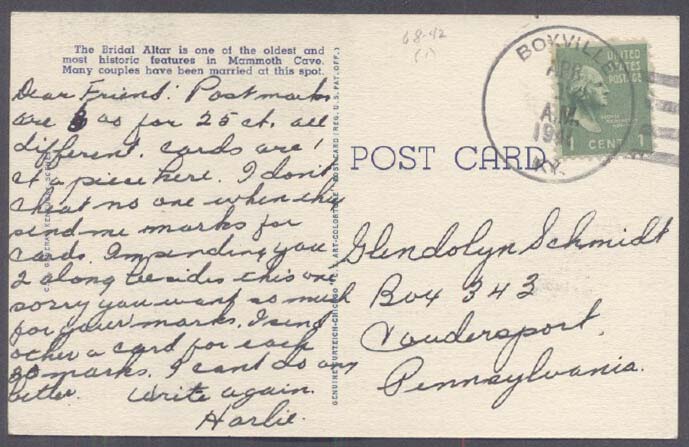 The Bridal Altar is one of the oldest and
most historic features in Mammoth Cave.
Many couples have been married at this spot.
68-42
(1)
Dear Friend: Postmarks
are 30 for 25 ct. all
different. cards are 1
ct a piece here. I don't
cheat no one when they
send me marks for
cards. Im sending you
2 along besides this one
sorry you want so much
for your marks. I send
other a card for each
30 marks. I cant do any
better. Write again.
Harlie.
POST CARD
BOXVILLE
A.M.
KY.
UNITED
STATES
POSTAGE
1 CENT 1
Glendolyn Schmidt
Box 343
Coudersport,
Pennsylvania.
GENUINE CURTEICH-CHICAGO "C.T. ART-COLORTONE" POST CARD (REG. U.S. PAT. OFF.)